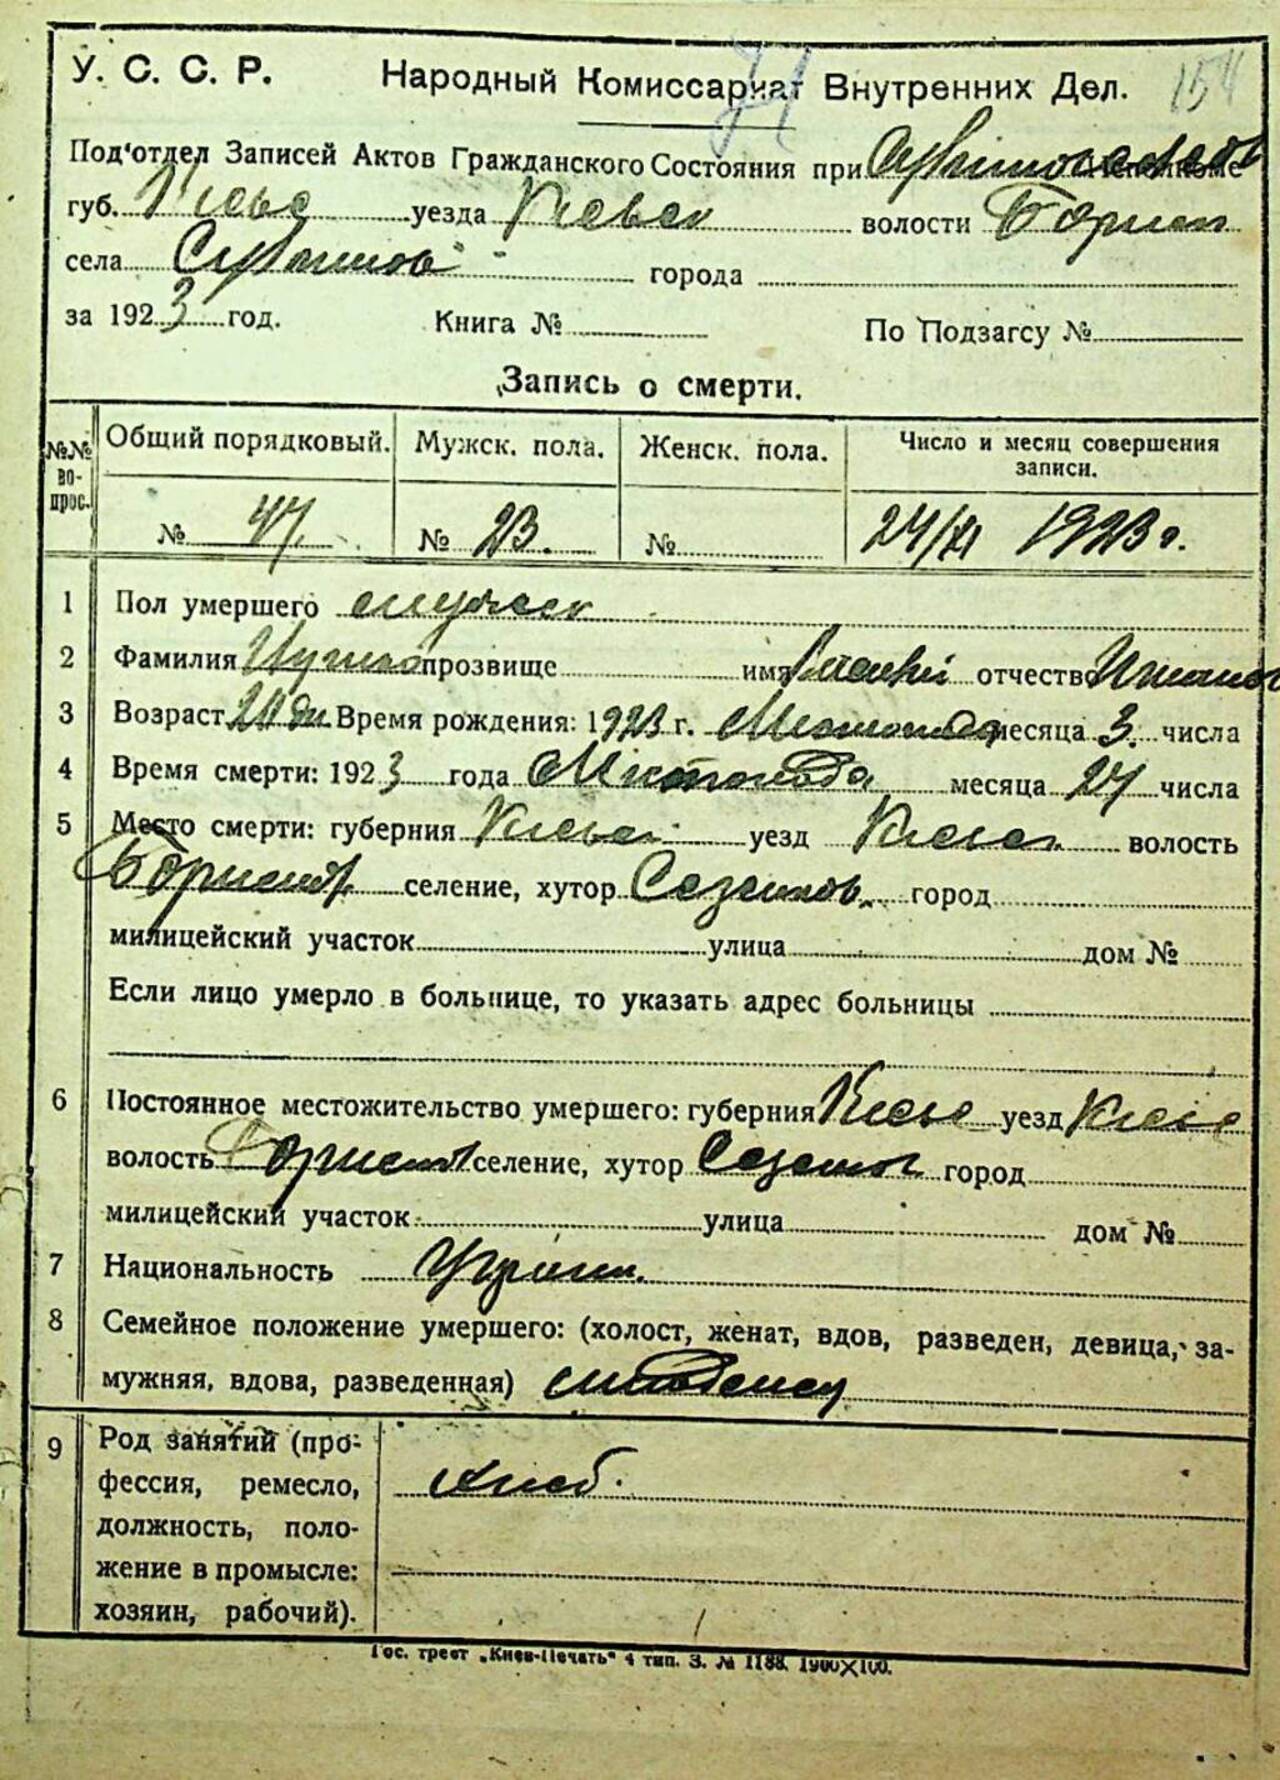 У. С. С. Р. Народный Комиссариат Внутренних Дел. 154
71
Под'отдел Записей Актов Гражданского Состояния при
губ. Киевс уезда Киевск волости Борисп
села города
за 1923 год. Книга № По Подзагсу №
Запись о смерти.
№№ во-прос. Общий порядковый. Мужск. пола. Женск. пола. Число и месяц совершения записи.
№ 47. № 23. № 24/XI 1923 г.
1 Пол умершего мужск
2 Фамилия прозвище имя отчество
3 Возраст 21 дн. Время рождения: 1923 г. Листопада месяца 3. числа
4 Время смерти: 1923 года Листопада месяца 24 числа
5 Место смерти: губерния Киевск уезд Киевск волость
Борисп селение, хутор город
милицейский участок улица дом №
Если лицо умерло в больнице, то указать адрес больницы
6 Постоянное местожительство умершего: губерния Киевс уезд Киевс
волость Борисп селение, хутор город
милицейский участок улица дом №
7 Национальность Украин.
8 Семейное положение умершего: (холост, женат, вдов, разведен, девица, за-
мужняя, вдова, разведенная)
9 Род занятий (про-
фессия, ремесло, хлеб.
должность, поло-
жение в промысле:
хозяин, рабочий).
Гос. трест „Киев-Печать“ 4 тип. З. № 1188. 1900×100.